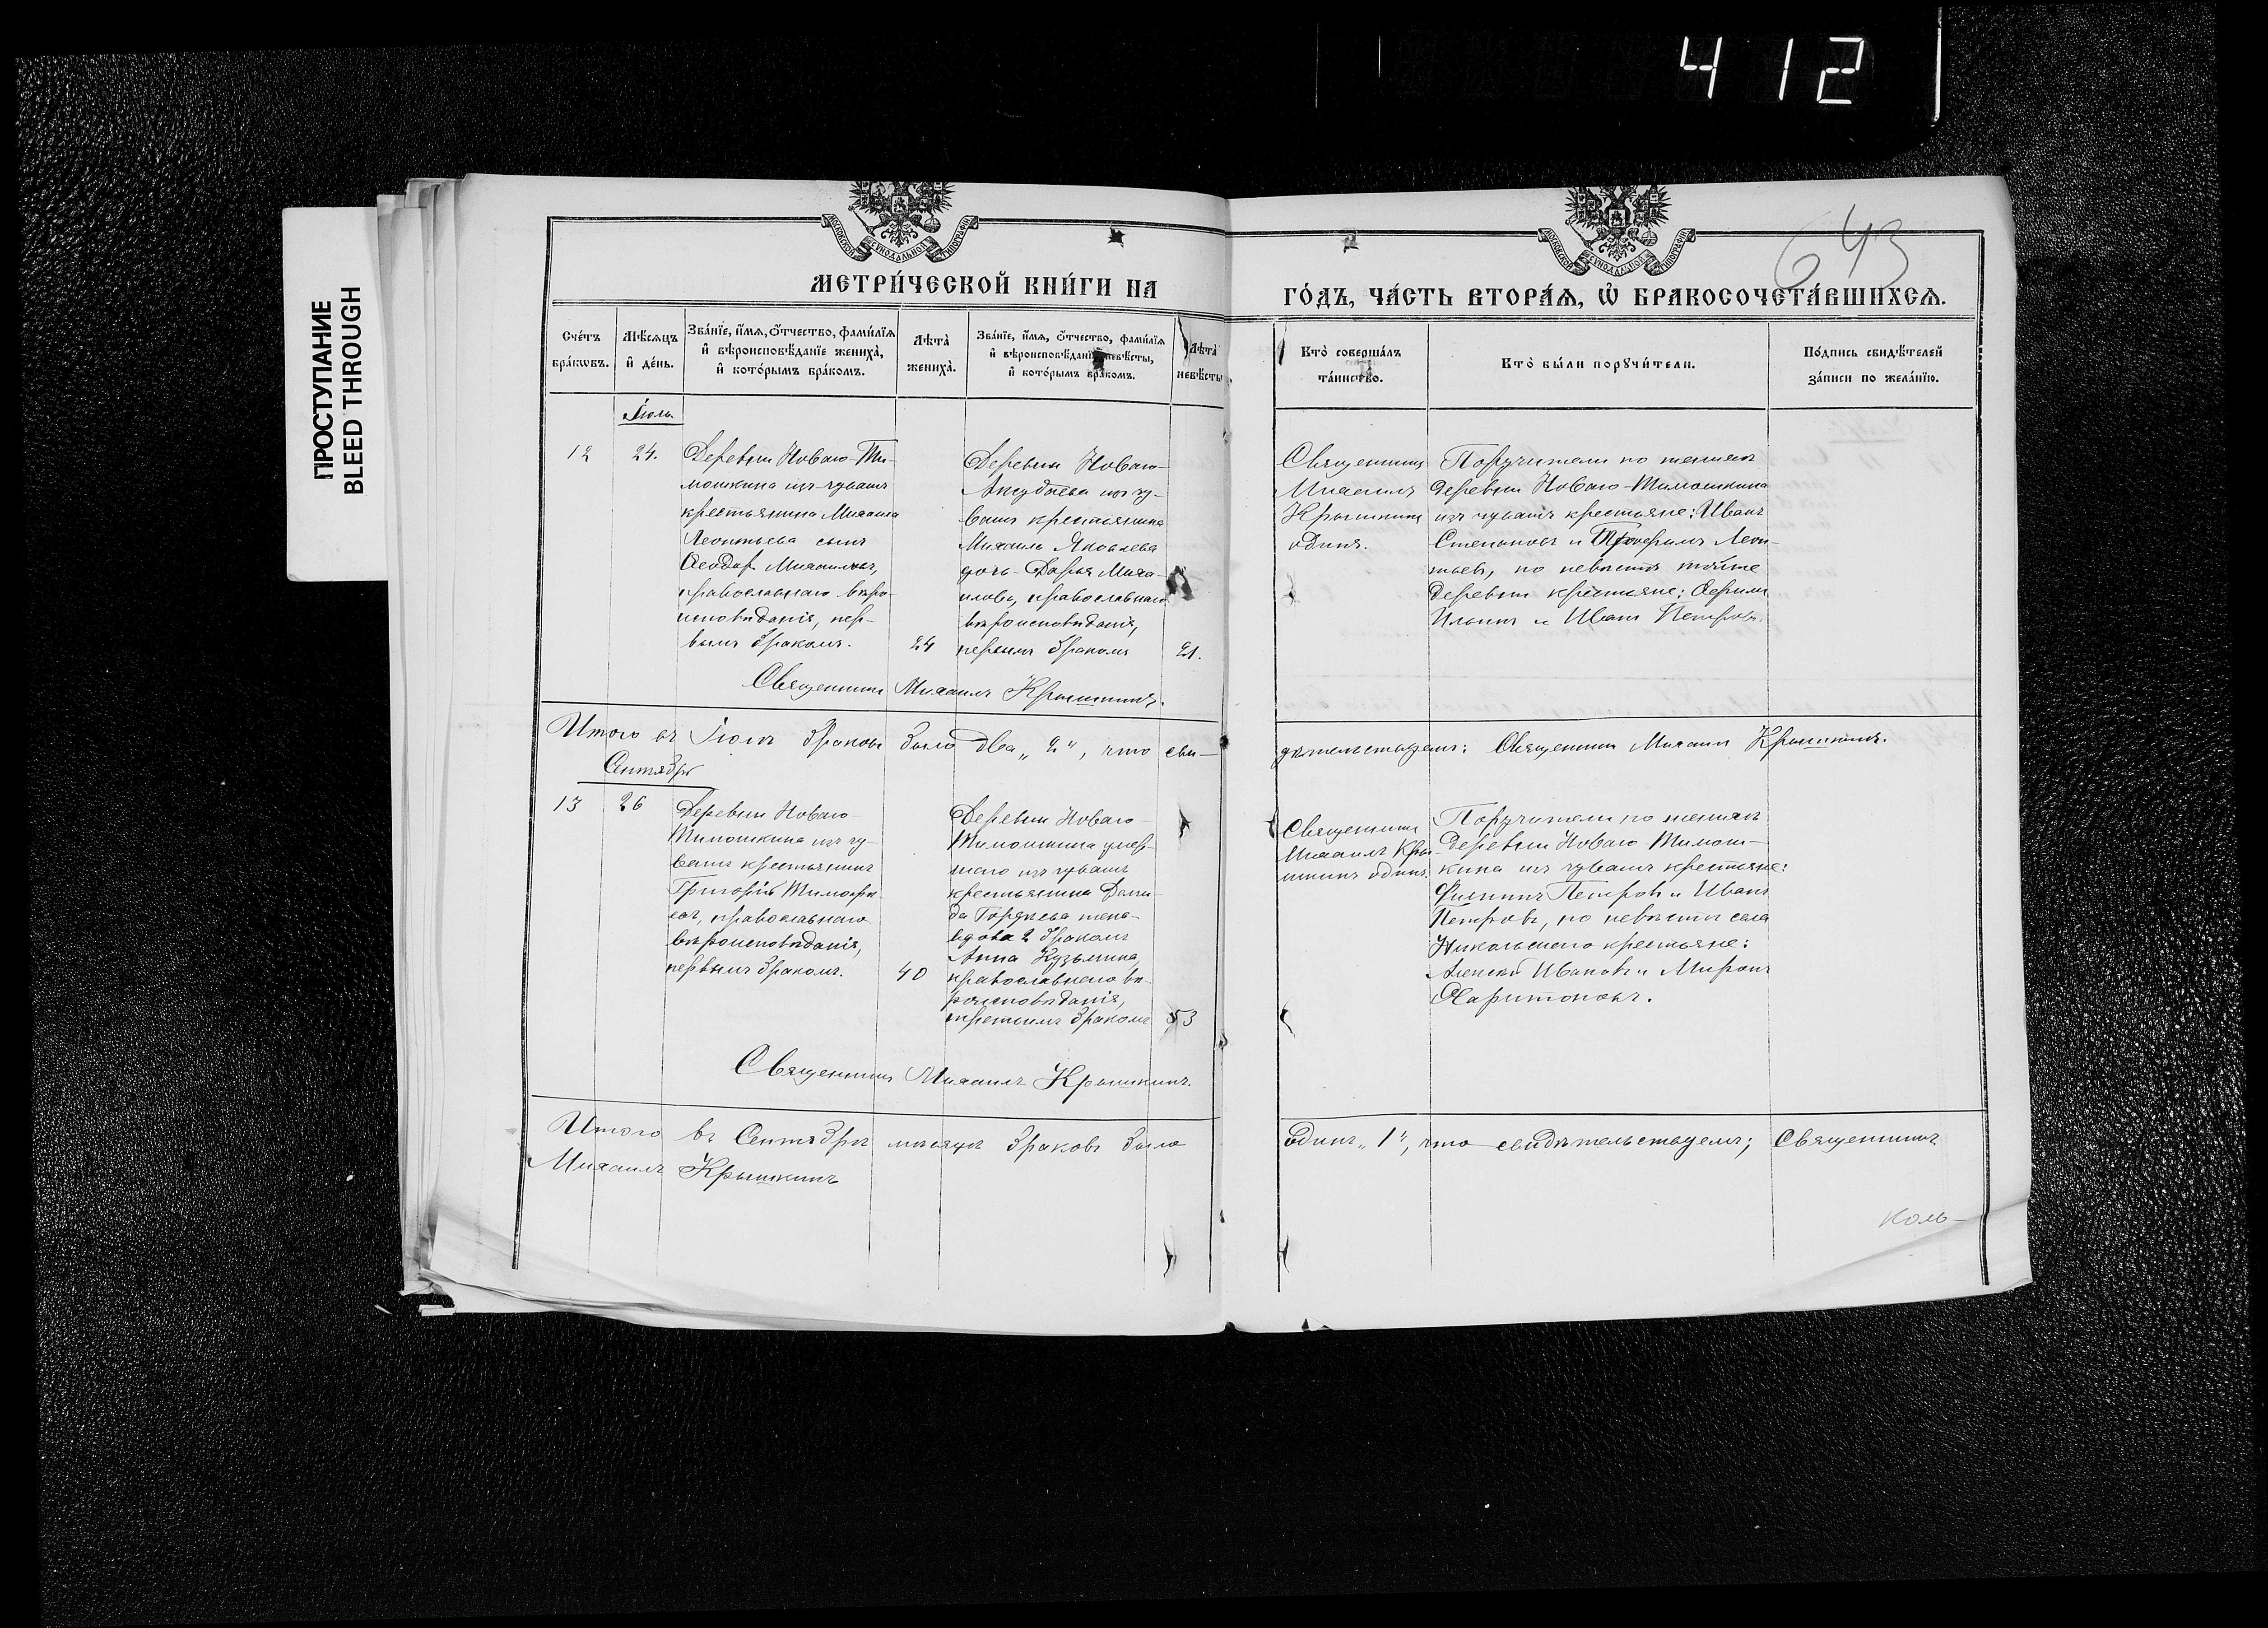 412
ПРОСТУПАНИЕ
BLEED THROUGH
643
МОСКОВСКОЙ СѴНОДАЛЬНОЙ ТИПОГРАФІИ
МОСКОВСКОЙ СѴНОДАЛЬНОЙ ТИПОГРАФІИ
МЕТРИ́ЧЕСКОЙ КНИ́ГИ НА
ГО́ДЪ, ЧА́СТЬ ВТОРА́Я, Ѡ҆ БРАКОСОЧЕТА́ВШИХСЯ.
Сче́тъ
бра́кѡвъ.
Мѣ́сяцъ
и҆ де́нь.
Зва́нїе, и҆́мя, ѻ҆́тчество, фами́лїя
и҆ вѣроисповѣ́данїе жениха̀,
и҆ кото́рымъ бра́комъ.
Лѣта̀
жениха̀.
Зва́нїе, и҆́мя, ѻ҆́тчество, фами́лїя
и҆ вѣроисповѣ́данїе невѣ́сты,
и҆ кото́рымъ бра́комъ.
Лѣта̀
невѣ́сты
Кто̀ соверша́лъ
та́инство.
Кто̀ бы́ли порꙋчи́тели.
По́дпись свидѣ́телей
за́писи по жела́нїю.
Іюль
12
24.
Деревни Новаго-Ти-
мошкина изъ чувашъ
крестьянина Михаила
Леонтьева сынъ
Ѳеодоръ Михаиловъ,
православнаго вѣро-
исповѣданія, пер-
вымъ бракомъ.
24
Деревни Новаго-
изъ чу-
вашъ крестьянина
Михаила Яковлева
дочь Дарья Миха-
илова, православнаго
вѣроисповѣданія,
первымъ бракомъ
21.
Священникъ
Михаилъ
Крышкинъ
одинъ.
Поручители по женихѣ
деревни Новаго-Тимошкина
изъ чувашъ крестьяне: Иванъ
Степановъ и Трофимъ Леон-
тьевъ, по невѣстѣ тойже
деревни крестьяне:
Ильинъ и Иванъ Петровъ.
Священникъ Михаилъ Крышкинъ.
Итого въ Іюлѣ браковъ было два „2“, что сви-
дѣтельствуемъ: Священникъ Михаилъ Крышкинъ.
Сентябрь
13
26
Деревни Новаго-
Тимошкина изъ чу-
вашъ крестьянинъ
Григорій Тимофе-
евъ, православнаго
вѣроисповѣданія,
первымъ бракомъ.
40
Деревни Новаго-
Тимошкина умер-
шаго изъ чувашъ
крестьянина Деми-
да Гордѣева жена-
вдова 2 бракомъ
Анна Кузьмина,
православнаго вѣ-
роисповѣданія,
третьимъ бракомъ
53
Священникъ
Михаилъ Кры-
шкинъ одинъ.
Поручители по женихѣ
деревни Новаго Тимош-
кина изъ чувашъ крестьяне:
Филиппъ Петровъ и Иванъ
Петровъ, по невѣстѣ села
Никольскаго крестьяне:
Алексѣй Ивановъ и Миронъ
Харитоновъ.
Священникъ Михаилъ Крышкинъ.
Итого въ Сентябрѣ мѣсяцѣ браковъ было
одинъ „1“, что свидѣтельствуемъ; Священникъ
Михаилъ Крышкинъ
коль-